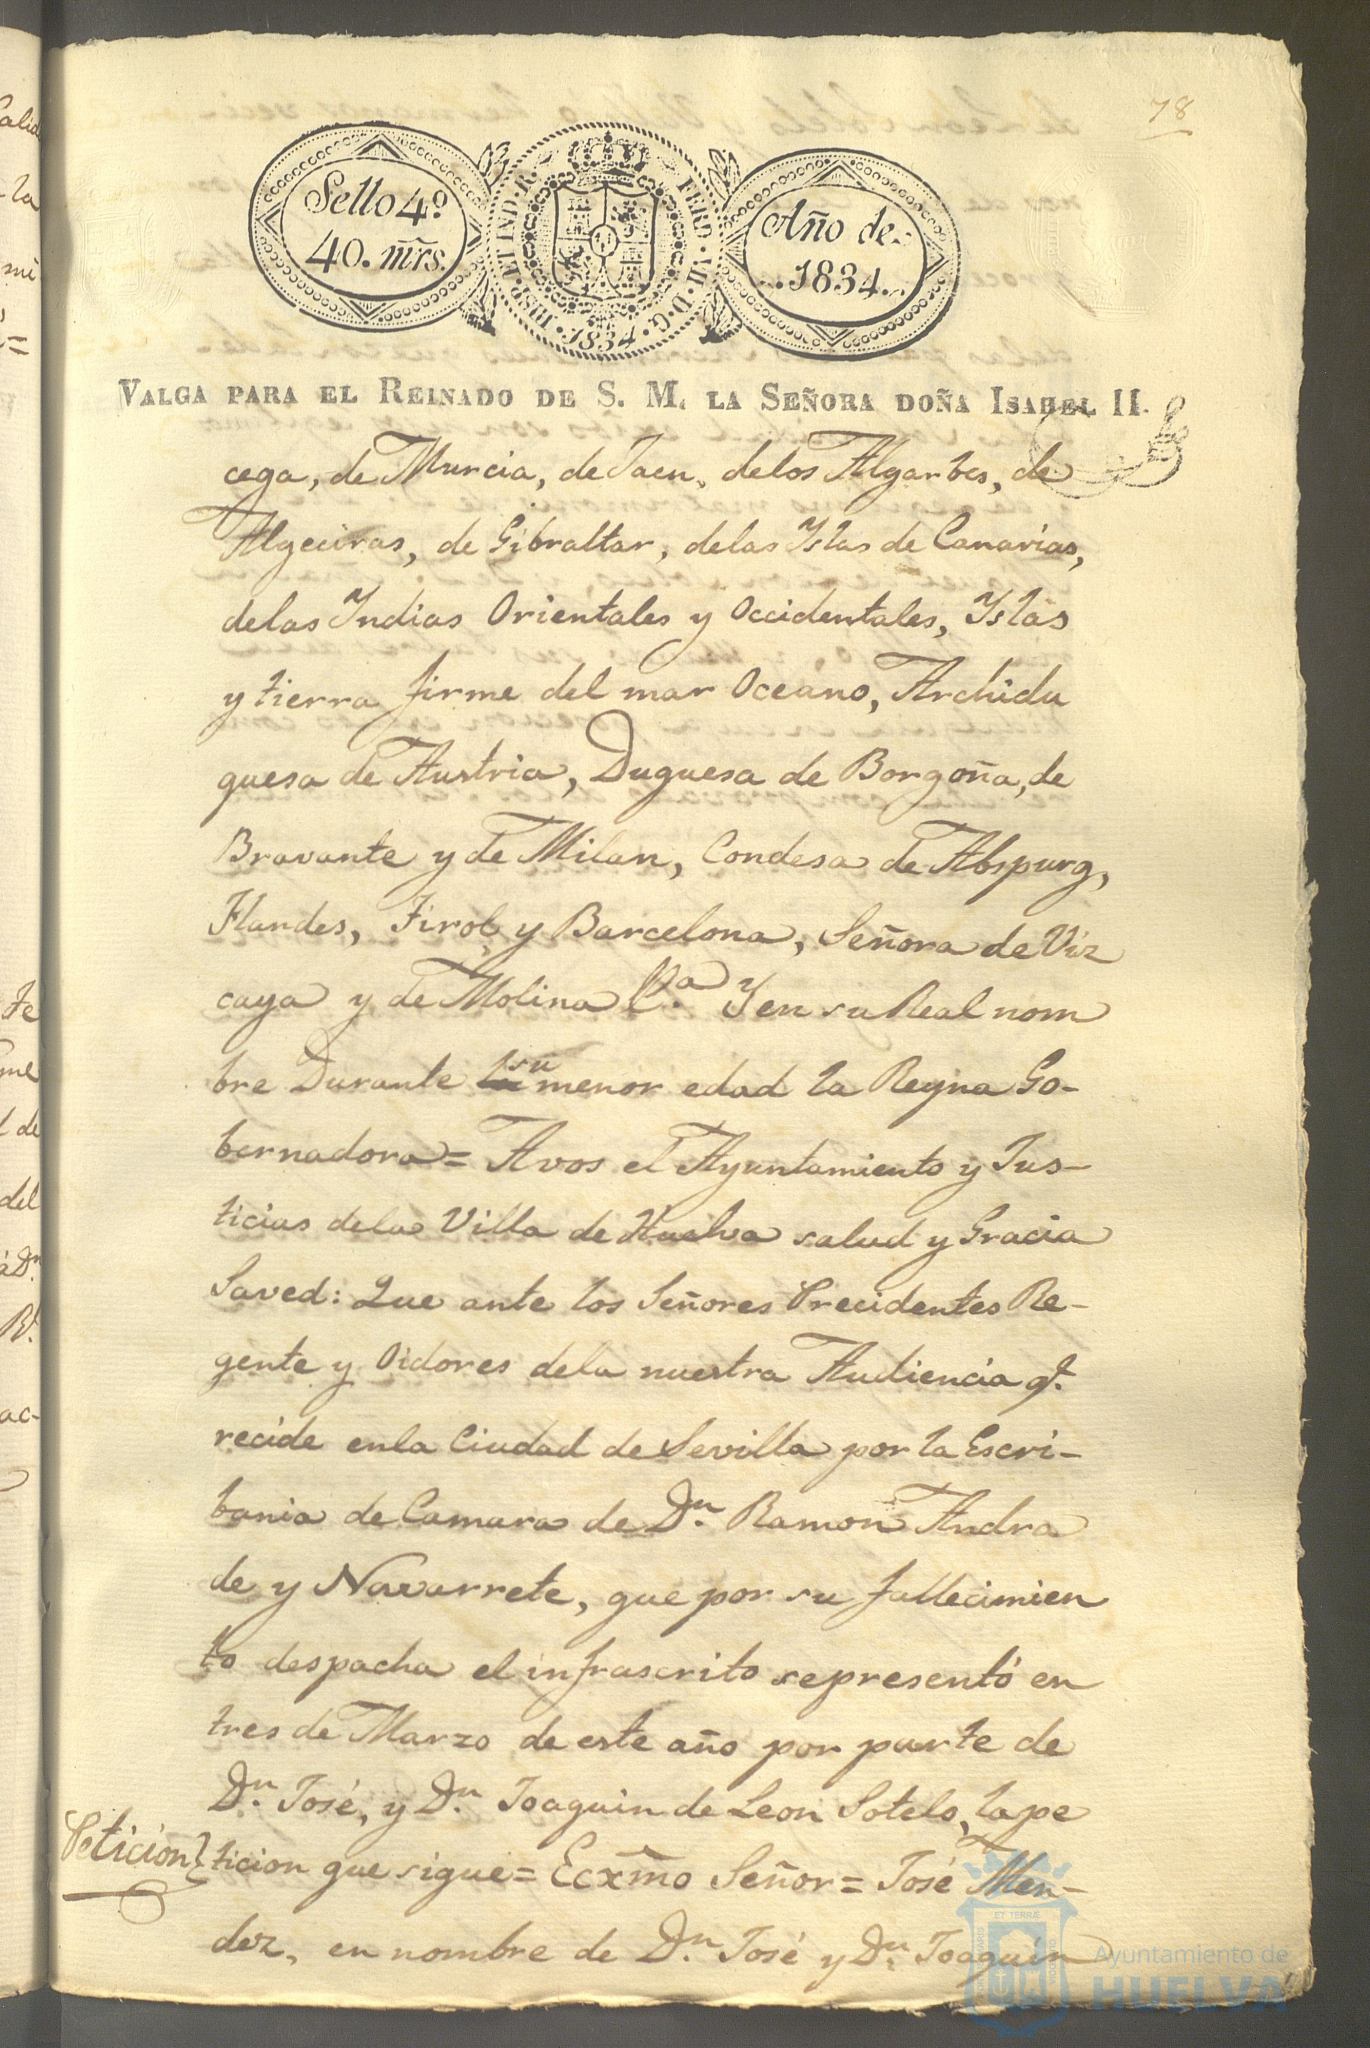 78
Sello 4º
40. mrs.
HISP. ET IND. R. FERD. VII. D. G. 1834.
Año de
1834.
VALGA PARA EL REINADO DE S. M. LA SEÑORA DOÑA ISABEL II.
cega, de Murcia, de Jaen, delos Algarbes, de
Algeciras, de Gibraltar, delas Yslas de Canarias,
delas Yndias Orientales y Occidentales, Yslas
y tierra firme del mar Oceano, Archidu
quesa de Austria, Duquesa de Borgoña, de
Bravante y de Milan, Condesa de Abspurg,
Flandes, Tirol, y Barcelona, Señora de Viz
caya y de Molina &.ª Y en su Real nom
bre Durante su menor edad la Reyna Go-
bernadora = Avos el Ayuntamiento y Jus-
ticias dela Villa de Huelva salud y Gracia
Saved: Que ante los Señores Precidentes Re-
gente y Oidores dela nuestra Audiencia q.
recide enla Ciudad de Sevilla por la Escri-
bania de Camara de Dn. Ramon Andra
de y Navarrete, que por su fallecimien
to despacha el infrascrito se presentó en
tres de Marzo de este año por parte de
Dn. José, y Dn. Joaquin de Leon Sotelo, la pe
Peticion
ticion que sigue = Ecxmo Señor = José Men-
dez, en nombre de Dn. José y Dn. Joaquin
Ayuntamiento de
HUELVA